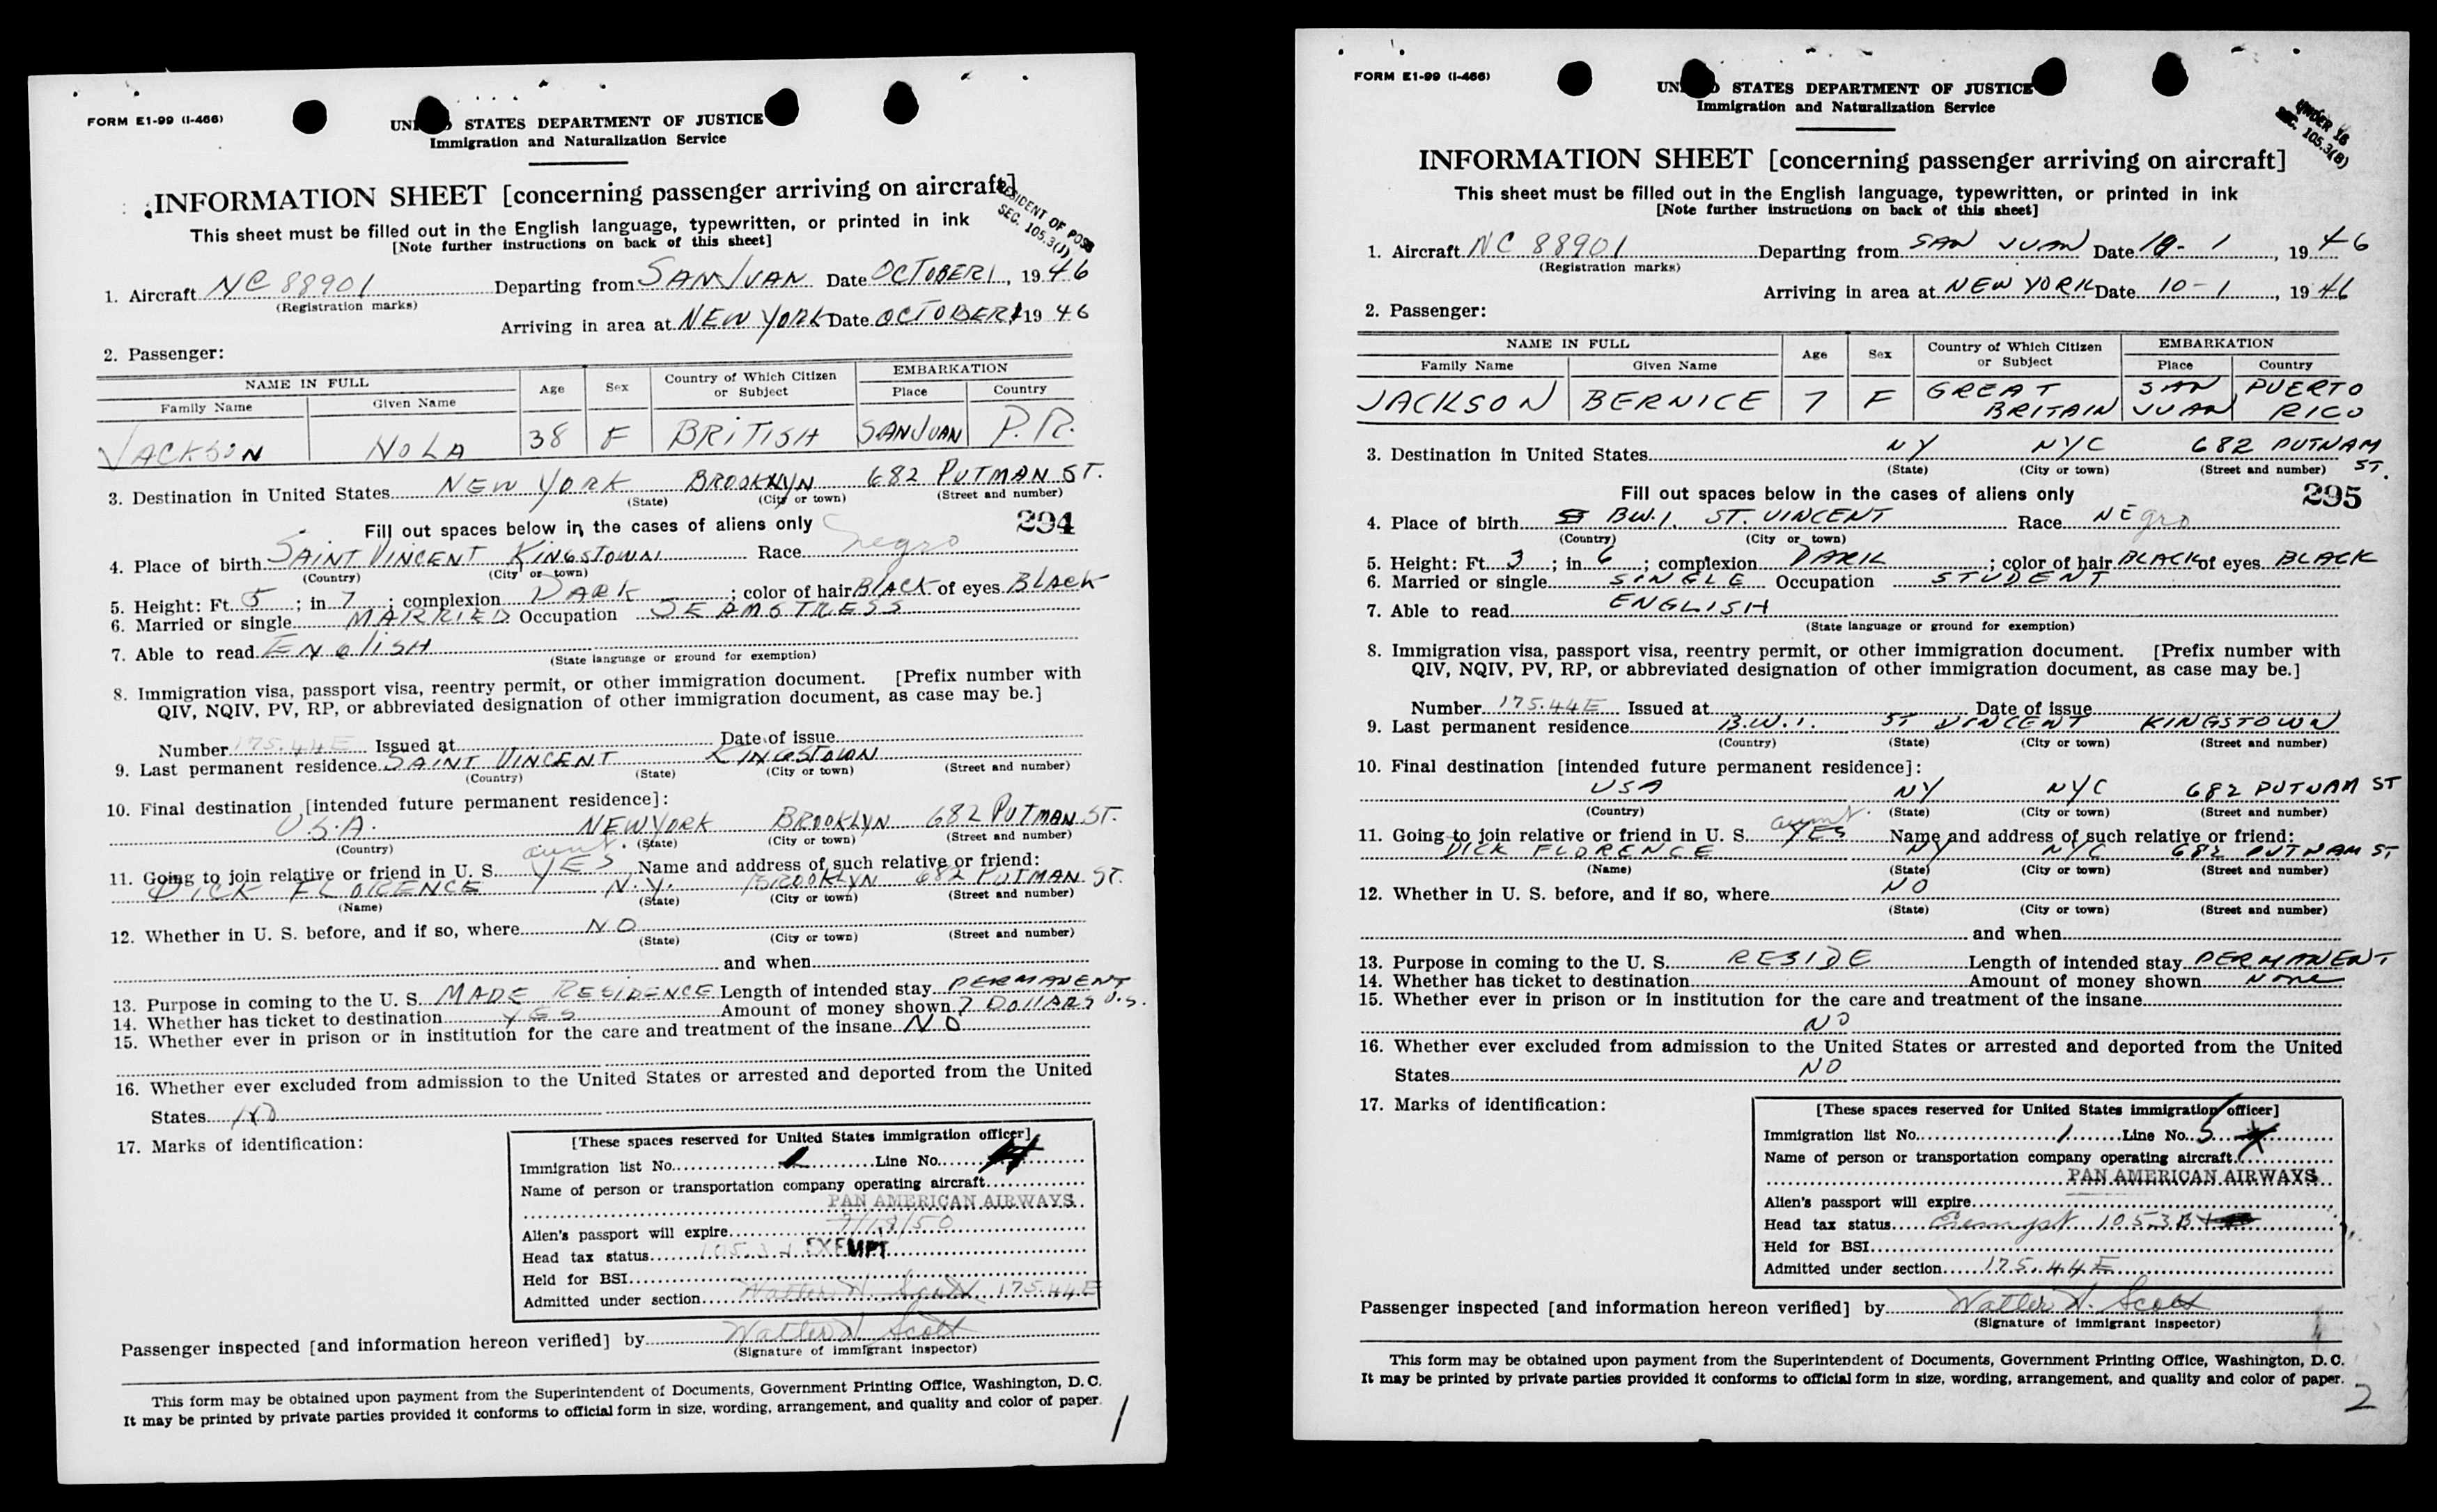 FORM E1-99 (I-466)
UNI D STATES DEPARTMENT OF JUSTICE
Immigration and Naturalization Service
INFORMATION SHEET [concerning passenger arriving on aircraft]
RESIDENT OF POSS
SEC. 105.3(1)
This sheet must be filled out in the English language, typewritten, or printed in ink
[Note further instructions on back of this sheet]
1. Aircraft NC 88901 Departing from SAN JUAN Date OCTOBER 1, 19 46
(Registration marks)
Arriving in area at NEW YORK Date OCTOBER 1, 19 46
2. Passenger:
NAME IN FULL Age Sex Country of Which Citizen or Subject EMBARKATION
Family Name Given Name Place Country
JACKSON NOLA 38 F BRITISH SAN JUAN P.R.
3. Destination in United States NEW YORK BROOKLYN 682 PUTMAN ST.
(State) (City or town) (Street and number)
Fill out spaces below in the cases of aliens only 294
4. Place of birth SAINT VINCENT KINGSTOWN Race negro
(Country) (City or town)
5. Height: Ft. 5; in 7; complexion DARK; color of hair BLACK of eyes BLACK
6. Married or single MARRIED Occupation SEAMSTRESS
7. Able to read ENGlISH
(State language or ground for exemption)
8. Immigration visa, passport visa, reentry permit, or other immigration document. [Prefix number with
QIV, NQIV, PV, RP, or abbreviated designation of other immigration document, as case may be.]
Number 175.44E Issued at Date of issue
9. Last permanent residence SAINT VINCENT KINGSTOWN
(Country) (State) (City or town) (Street and number)
10. Final destination [intended future permanent residence]:
U.S.A. NEW YORK BROOKLYN 682 PUTMAN ST.
(Country) (State) (City or town) (Street and number)
aunt.
11. Going to join relative or friend in U. S. YES Name and address of such relative or friend:
DICK FLORENCE N.Y. BROOKLYN 682 PUTMAN ST.
(Name) (State) (City or town) (Street and number)
12. Whether in U. S. before, and if so, where NO
(State) (City or town) (Street and number)
and when
13. Purpose in coming to the U. S. MADE RESIDENCE Length of intended stay PERMANENT
14. Whether has ticket to destination YES Amount of money shown 7 DOllARS U.S.
15. Whether ever in prison or in institution for the care and treatment of the insane NO
16. Whether ever excluded from admission to the United States or arrested and deported from the United
States NO
17. Marks of identification:
[These spaces reserved for United States immigration officer]
Immigration list No. 1 Line No. 4
Name of person or transportation company operating aircraft
PAN AMERICAN AIRWAYS
Alien's passport will expire 7/18/50
Head tax status 105.3 EXEMPT
Held for BSI
Admitted under section Walter W. Scott 175.44E
Passenger inspected [and information hereon verified] by Walter W. Scott
(Signature of immigrant inspector)
This form may be obtained upon payment from the Superintendent of Documents, Government Printing Office, Washington, D. C.
It may be printed by private parties provided it conforms to official form in size, wording, arrangement, and quality and color of paper.
1
FORM E1-99 (I-466)
UNI D STATES DEPARTMENT OF JUSTICE
Immigration and Naturalization Service
UNDER 16
SEC. 105.3(B)
INFORMATION SHEET [concerning passenger arriving on aircraft]
This sheet must be filled out in the English language, typewritten, or printed in ink
[Note further instructions on back of this sheet]
1. Aircraft NC 88901 Departing from SAN JUAN Date 10-1, 19 46
(Registration marks)
Arriving in area at NEW YORK Date 10-1, 19 46
2. Passenger:
NAME IN FULL Age Sex Country of Which Citizen or Subject EMBARKATION
Family Name Given Name Place Country
JACKSON BERNICE 7 F GREAT BRITAIN SAN JUAN PUERTO RICO
3. Destination in United States NY NYC 682 PUTNAM ST.
(State) (City or town) (Street and number)
Fill out spaces below in the cases of aliens only 295
4. Place of birth B.W.I. ST. VINCENT Race NEgro
(Country) (City or town)
5. Height: Ft. 3; in 6; complexion DARK; color of hair BLACK of eyes BLACK
6. Married or single SINGLE Occupation STUDENT
7. Able to read ENGLISH
(State language or ground for exemption)
8. Immigration visa, passport visa, reentry permit, or other immigration document. [Prefix number with
QIV, NQIV, PV, RP, or abbreviated designation of other immigration document, as case may be.]
Number 175.44E Issued at Date of issue
9. Last permanent residence B.W.I. ST VINCENT KINGSTOWN
(Country) (State) (City or town) (Street and number)
10. Final destination [intended future permanent residence]:
USA NY NYC 682 PUTNAM ST
(Country) (State) (City or town) (Street and number)
aunt.
11. Going to join relative or friend in U. S. YES Name and address of such relative or friend:
DICK FLORENCE NY NYC 682 PUTNAM ST
(Name) (State) (City or town) (Street and number)
12. Whether in U. S. before, and if so, where NO
(State) (City or town) (Street and number)
and when
13. Purpose in coming to the U. S. RESIDE Length of intended stay PERMANENT
14. Whether has ticket to destination Amount of money shown NONE
15. Whether ever in prison or in institution for the care and treatment of the insane
NO
16. Whether ever excluded from admission to the United States or arrested and deported from the United
States NO
17. Marks of identification:
[These spaces reserved for United States immigration officer]
Immigration list No. 1 Line No. 5
Name of person or transportation company operating aircraft
PAN AMERICAN AIRWAYS
Alien's passport will expire
Head tax status Exempt 105.3B
Held for BSI
Admitted under section 175.44E
Passenger inspected [and information hereon verified] by Walter W. Scott
(Signature of immigrant inspector)
This form may be obtained upon payment from the Superintendent of Documents, Government Printing Office, Washington, D. C.
It may be printed by private parties provided it conforms to official form in size, wording, arrangement, and quality and color of paper.
2